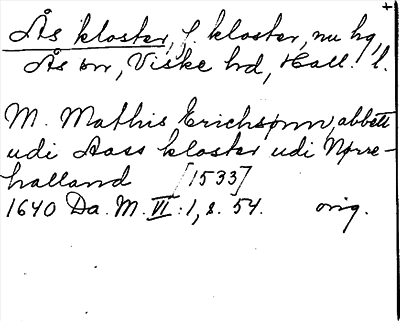 +
Ås kloster, f. kloster, nu hg,
Ås sn, Viske hd, Hall. l.
M. Mathis Erichsønn, abbett
udi Aass kloster udi Nørre-
halland [1533]
1640 Da. M. VI:1, s. 54. orig.